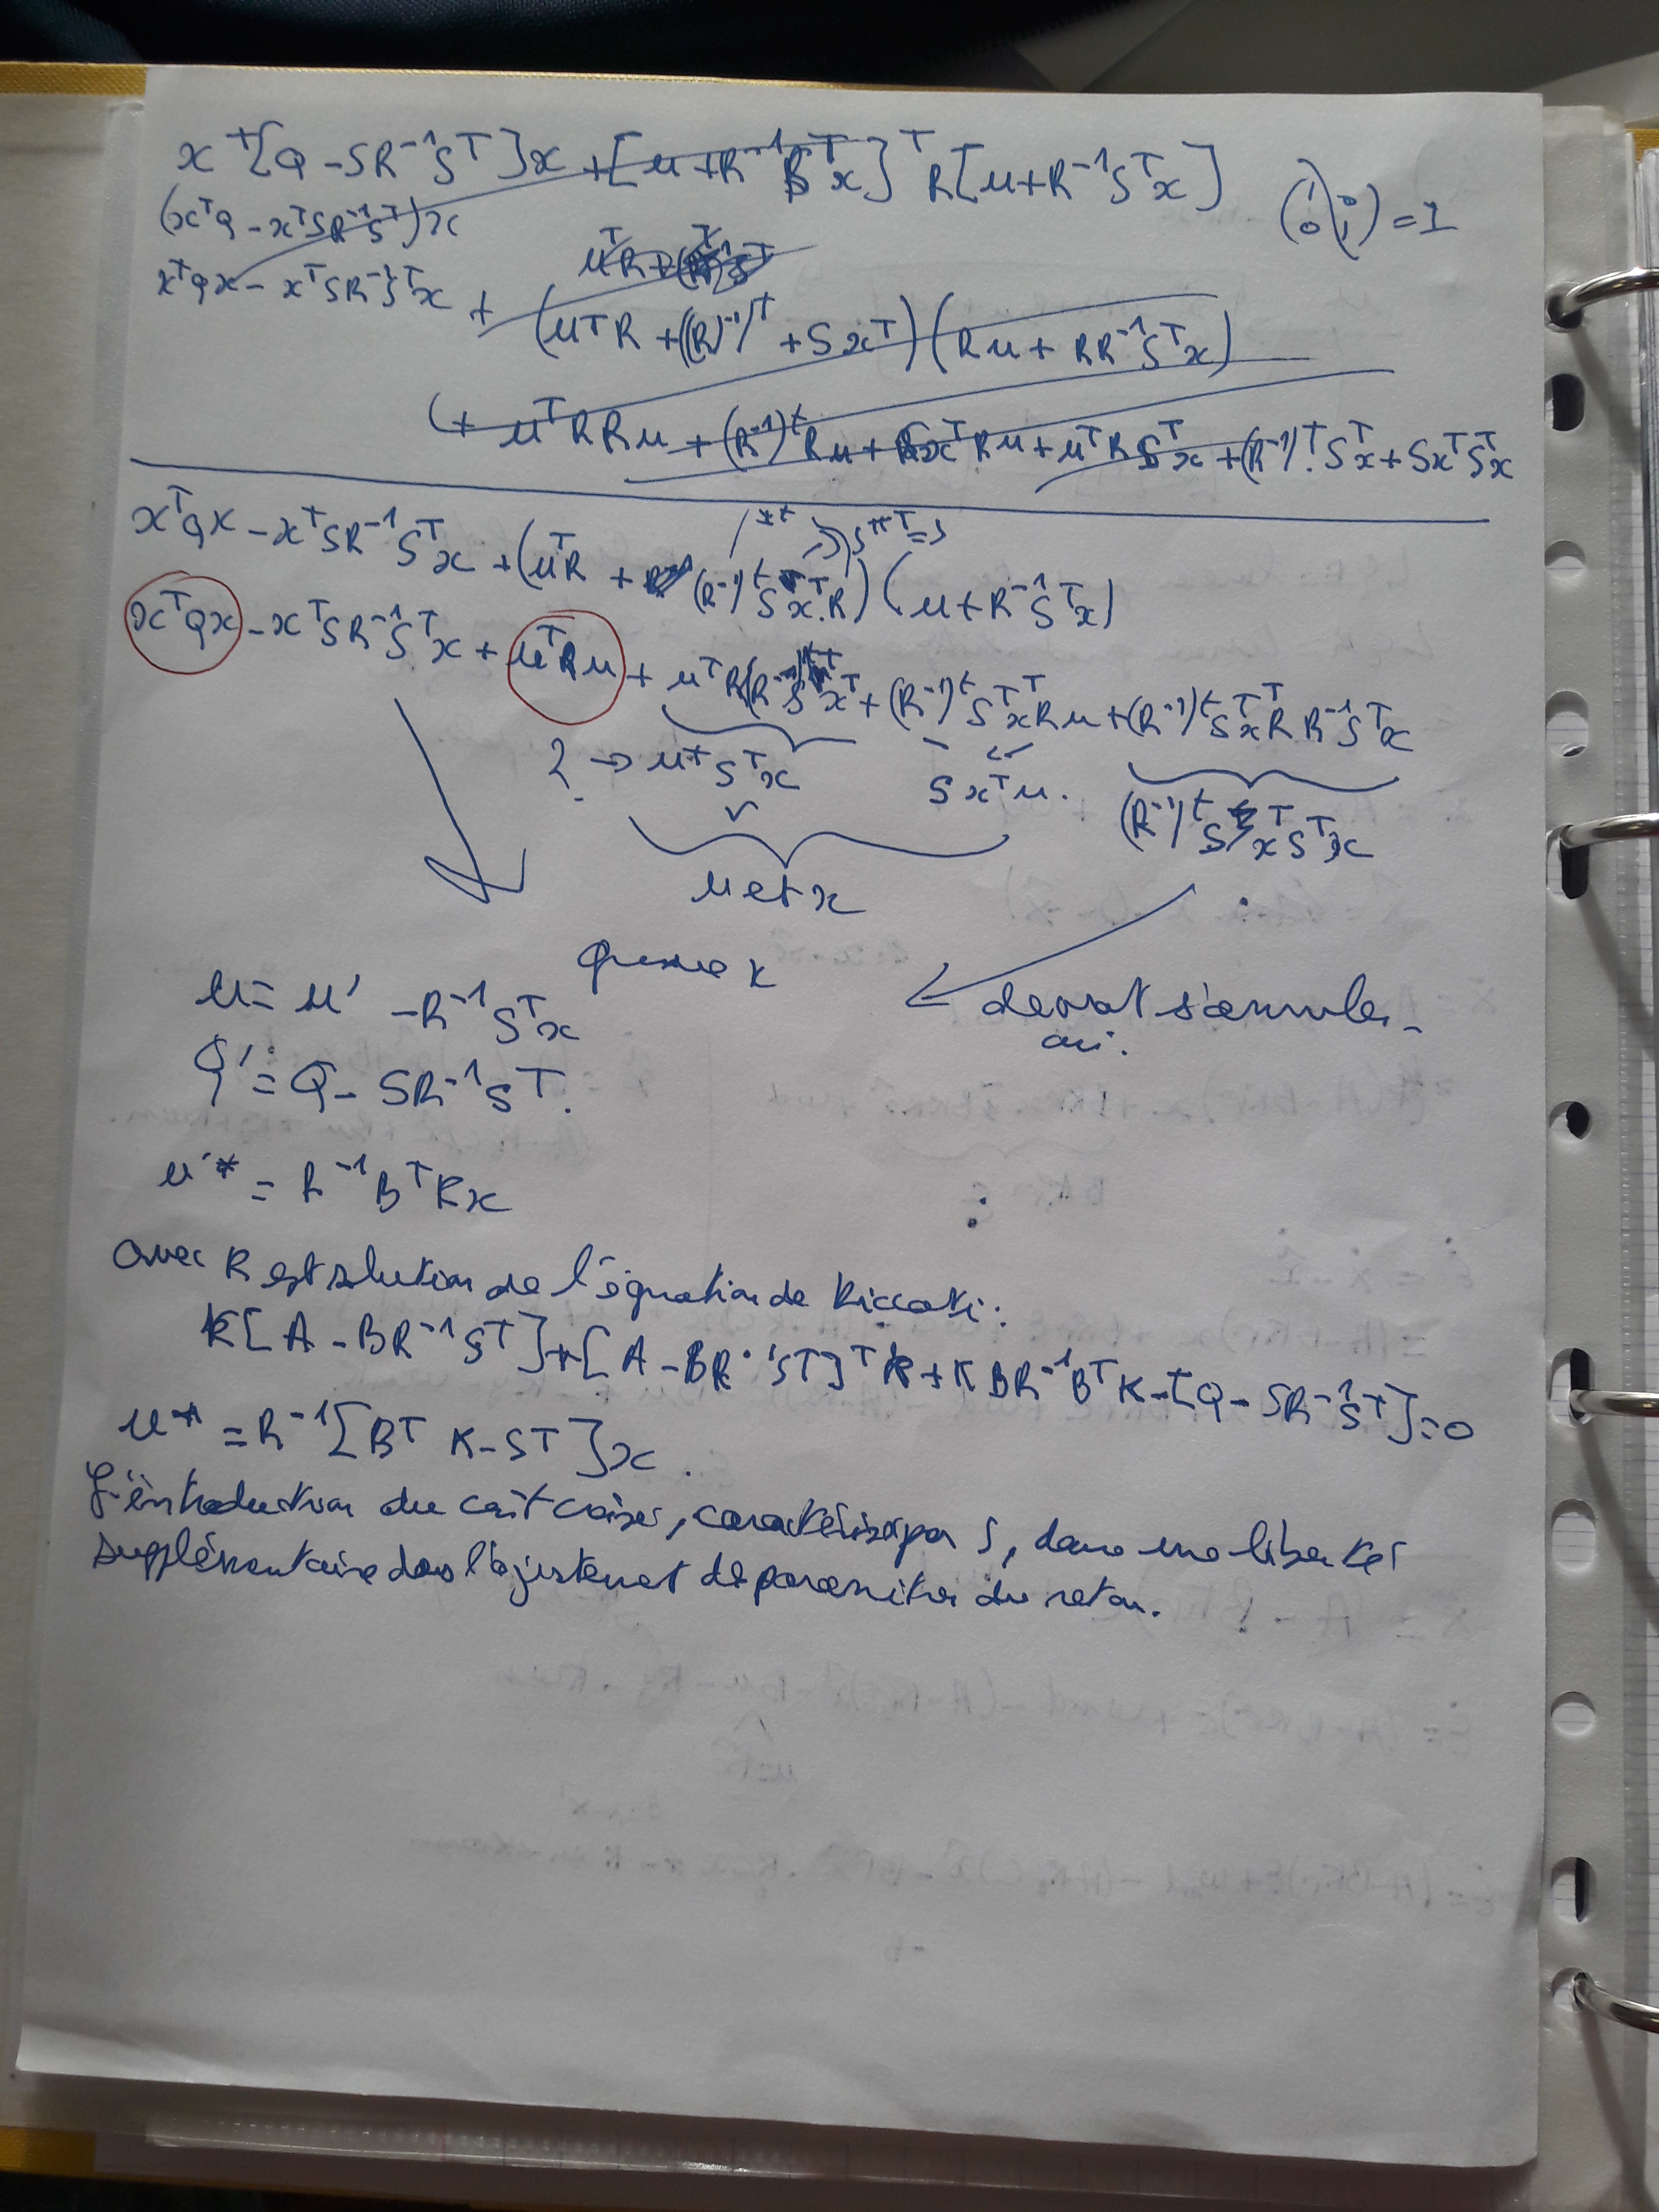 x^T[Q - SR^-1 S^T]x + [u + R^-1 S^T x]^T R[u + R^-1 S^T x]
(1 0 0 1) = I
(x^T Q - x^T S R^-1 S^T)x
x^T Q x - x^T S R^-1 S^T x +
(u^T R + ((R)^-1)^T + S x^T)(R u + R R^-1 S^T x)
(+ u^T R R u + (R^-1)^t R u + S x^T R u + u^T R S^T x + (R^-1)^T. S^T x + S x^T S^T x
x^T Q x - x^T S R^-1 S^T x + (u^T R + (R^-1)^t S x^T. R)(u + R^-1 S^T x)
S^TT = S
x^T Q x - x^T S R^-1 S^T x + u^T R u + u^T R (R^-1) S x^T + (R^-1)^t S x^T R u + (R^-1)^t S x^T R R^-1 S^T x
? → u^T S^T x
S x^T u.
(R^-1)^t S x^T S^T x
u et x
u = u' - R^-1 S^T x
devrait s'annuler
Q' = Q - S R^-1 S^T.
u'* = R^-1 B^T K x
avec K est solution de l'équation de Riccati :
K[A - BR^-1 S^T] + [A - BR^-1 S^T]^T K + K BR^-1 B^T K - [Q - SR^-1 S^T] = 0
u* = R^-1 [B^T K - S^T] x.
L'introduction du coût croisé, caractérisé par S, donne une liberté
supplémentaire dans l'ajustement de paramètre du retour.